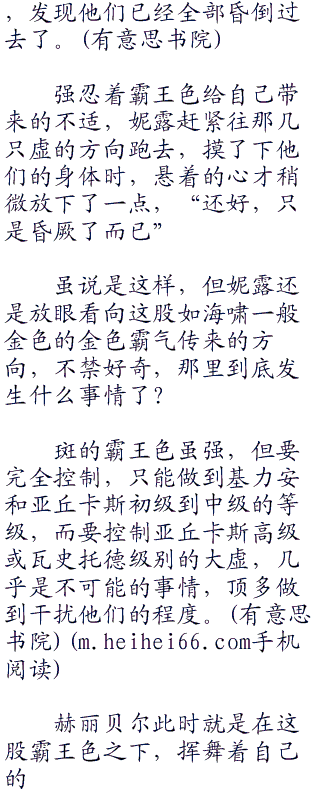 ，发现他们已经全部昏倒过
去了。(有意思书院)
强忍着霸王色给自己带
来的不适，妮露赶紧往那几
只虚的方向跑去，摸了下他
们的身体时，悬着的心才稍
微放下了一点，“还好，只
是昏厥了而已”
虽说是这样，但妮露还
是放眼看向这股如海啸一般
金色的金色霸气传来的方
向，不禁好奇，那里到底发
生什么事情了？
斑的霸王色虽强，但要
完全控制，只能做到基力安
和亚丘卡斯初级到中级的等
级，而要控制亚丘卡斯高级
或瓦史托德级别的大虚，几
乎是不可能的事情，顶多做
到干扰他们的程度。(有意思
书院)(m.heihei66.com手机
阅读)
赫丽贝尔此时就是在这
股霸王色之下，挥舞着自己
的